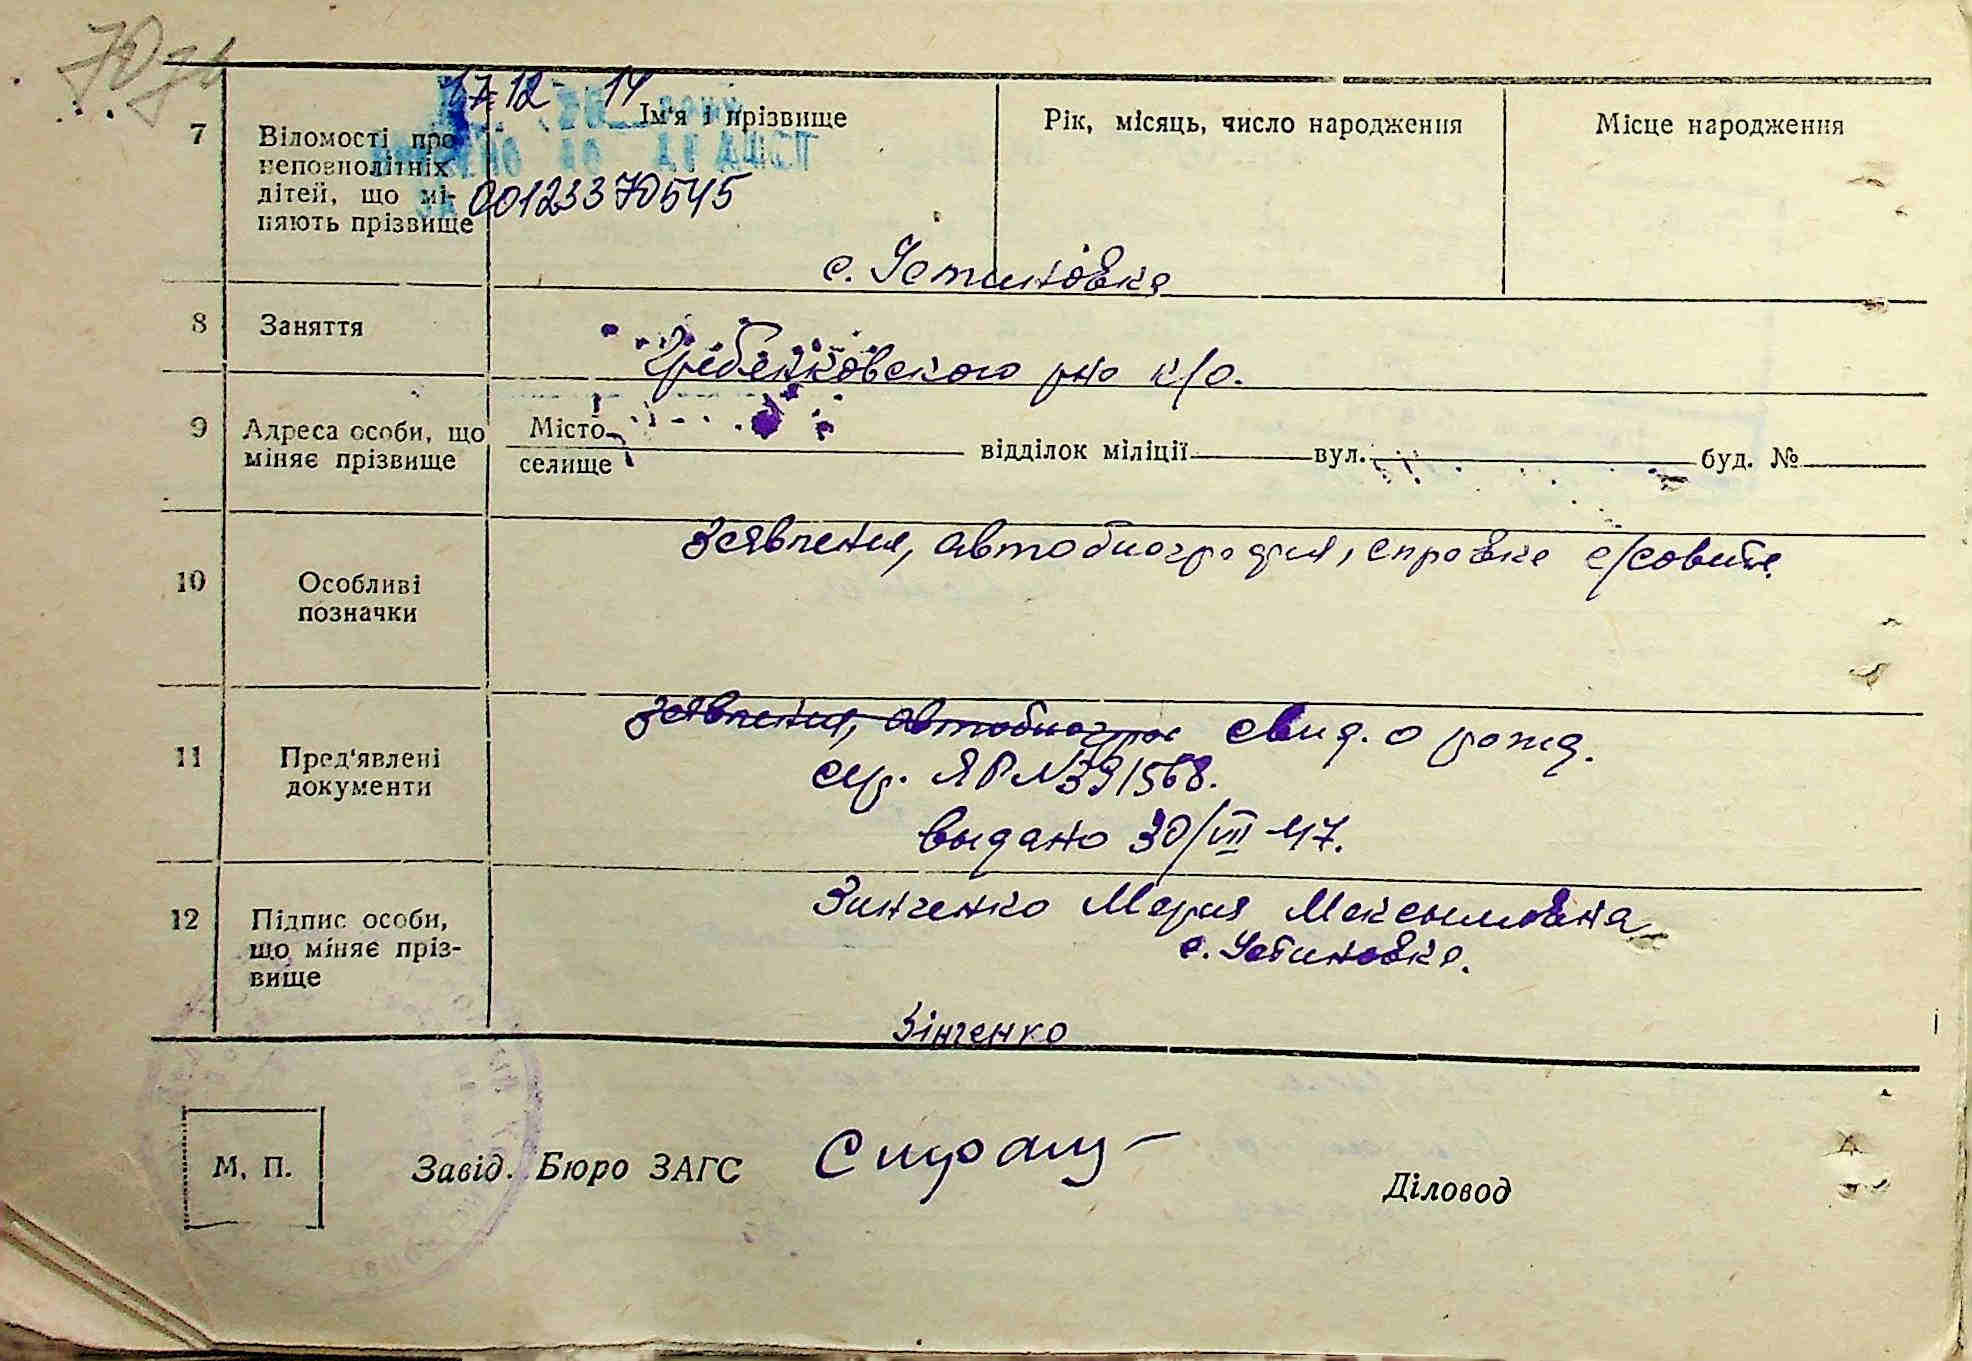 70
17 12 14
7
Відомості про неповнолітніх дітей, що міняють прізвище
Ім'я і прізвище
Рік, місяць, число народження
Місце народження
00123370545
с. Устиновка
8
Заняття
Гребенковского р-на к/о.
9
Адреса особи, що міняє прізвище
Місто
селище
відділок міліції
вул.
буд. №
10
Особливі позначки
заявления, автобиография, справка с/совета
11
Пред'явлені документи
заявления, автобиогра свид. о рожд.
сер. ЯР №391568.
выдано 30/VIII-47.
12
Підпис особи, що міняє прізвище
Зинченко Мария Максимовна
с. Устиновка.
Зінченко
М. П.
Завід. Бюро ЗАГС
Діловод